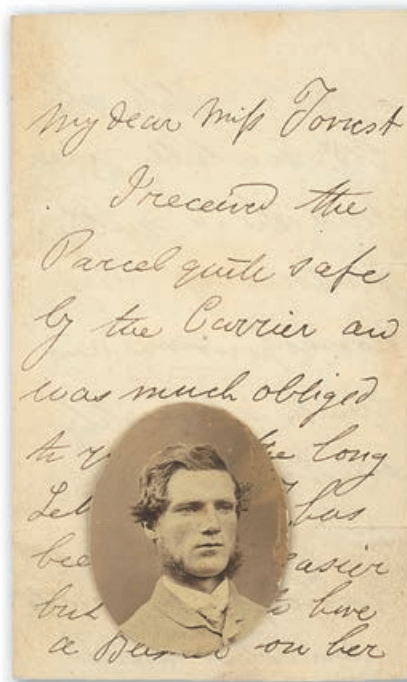 My dear Miss Forrest
I received the
Parcel quite safe
by the Carrier an
was much obliged
the long
Let has
bee easier
but to have
a on her